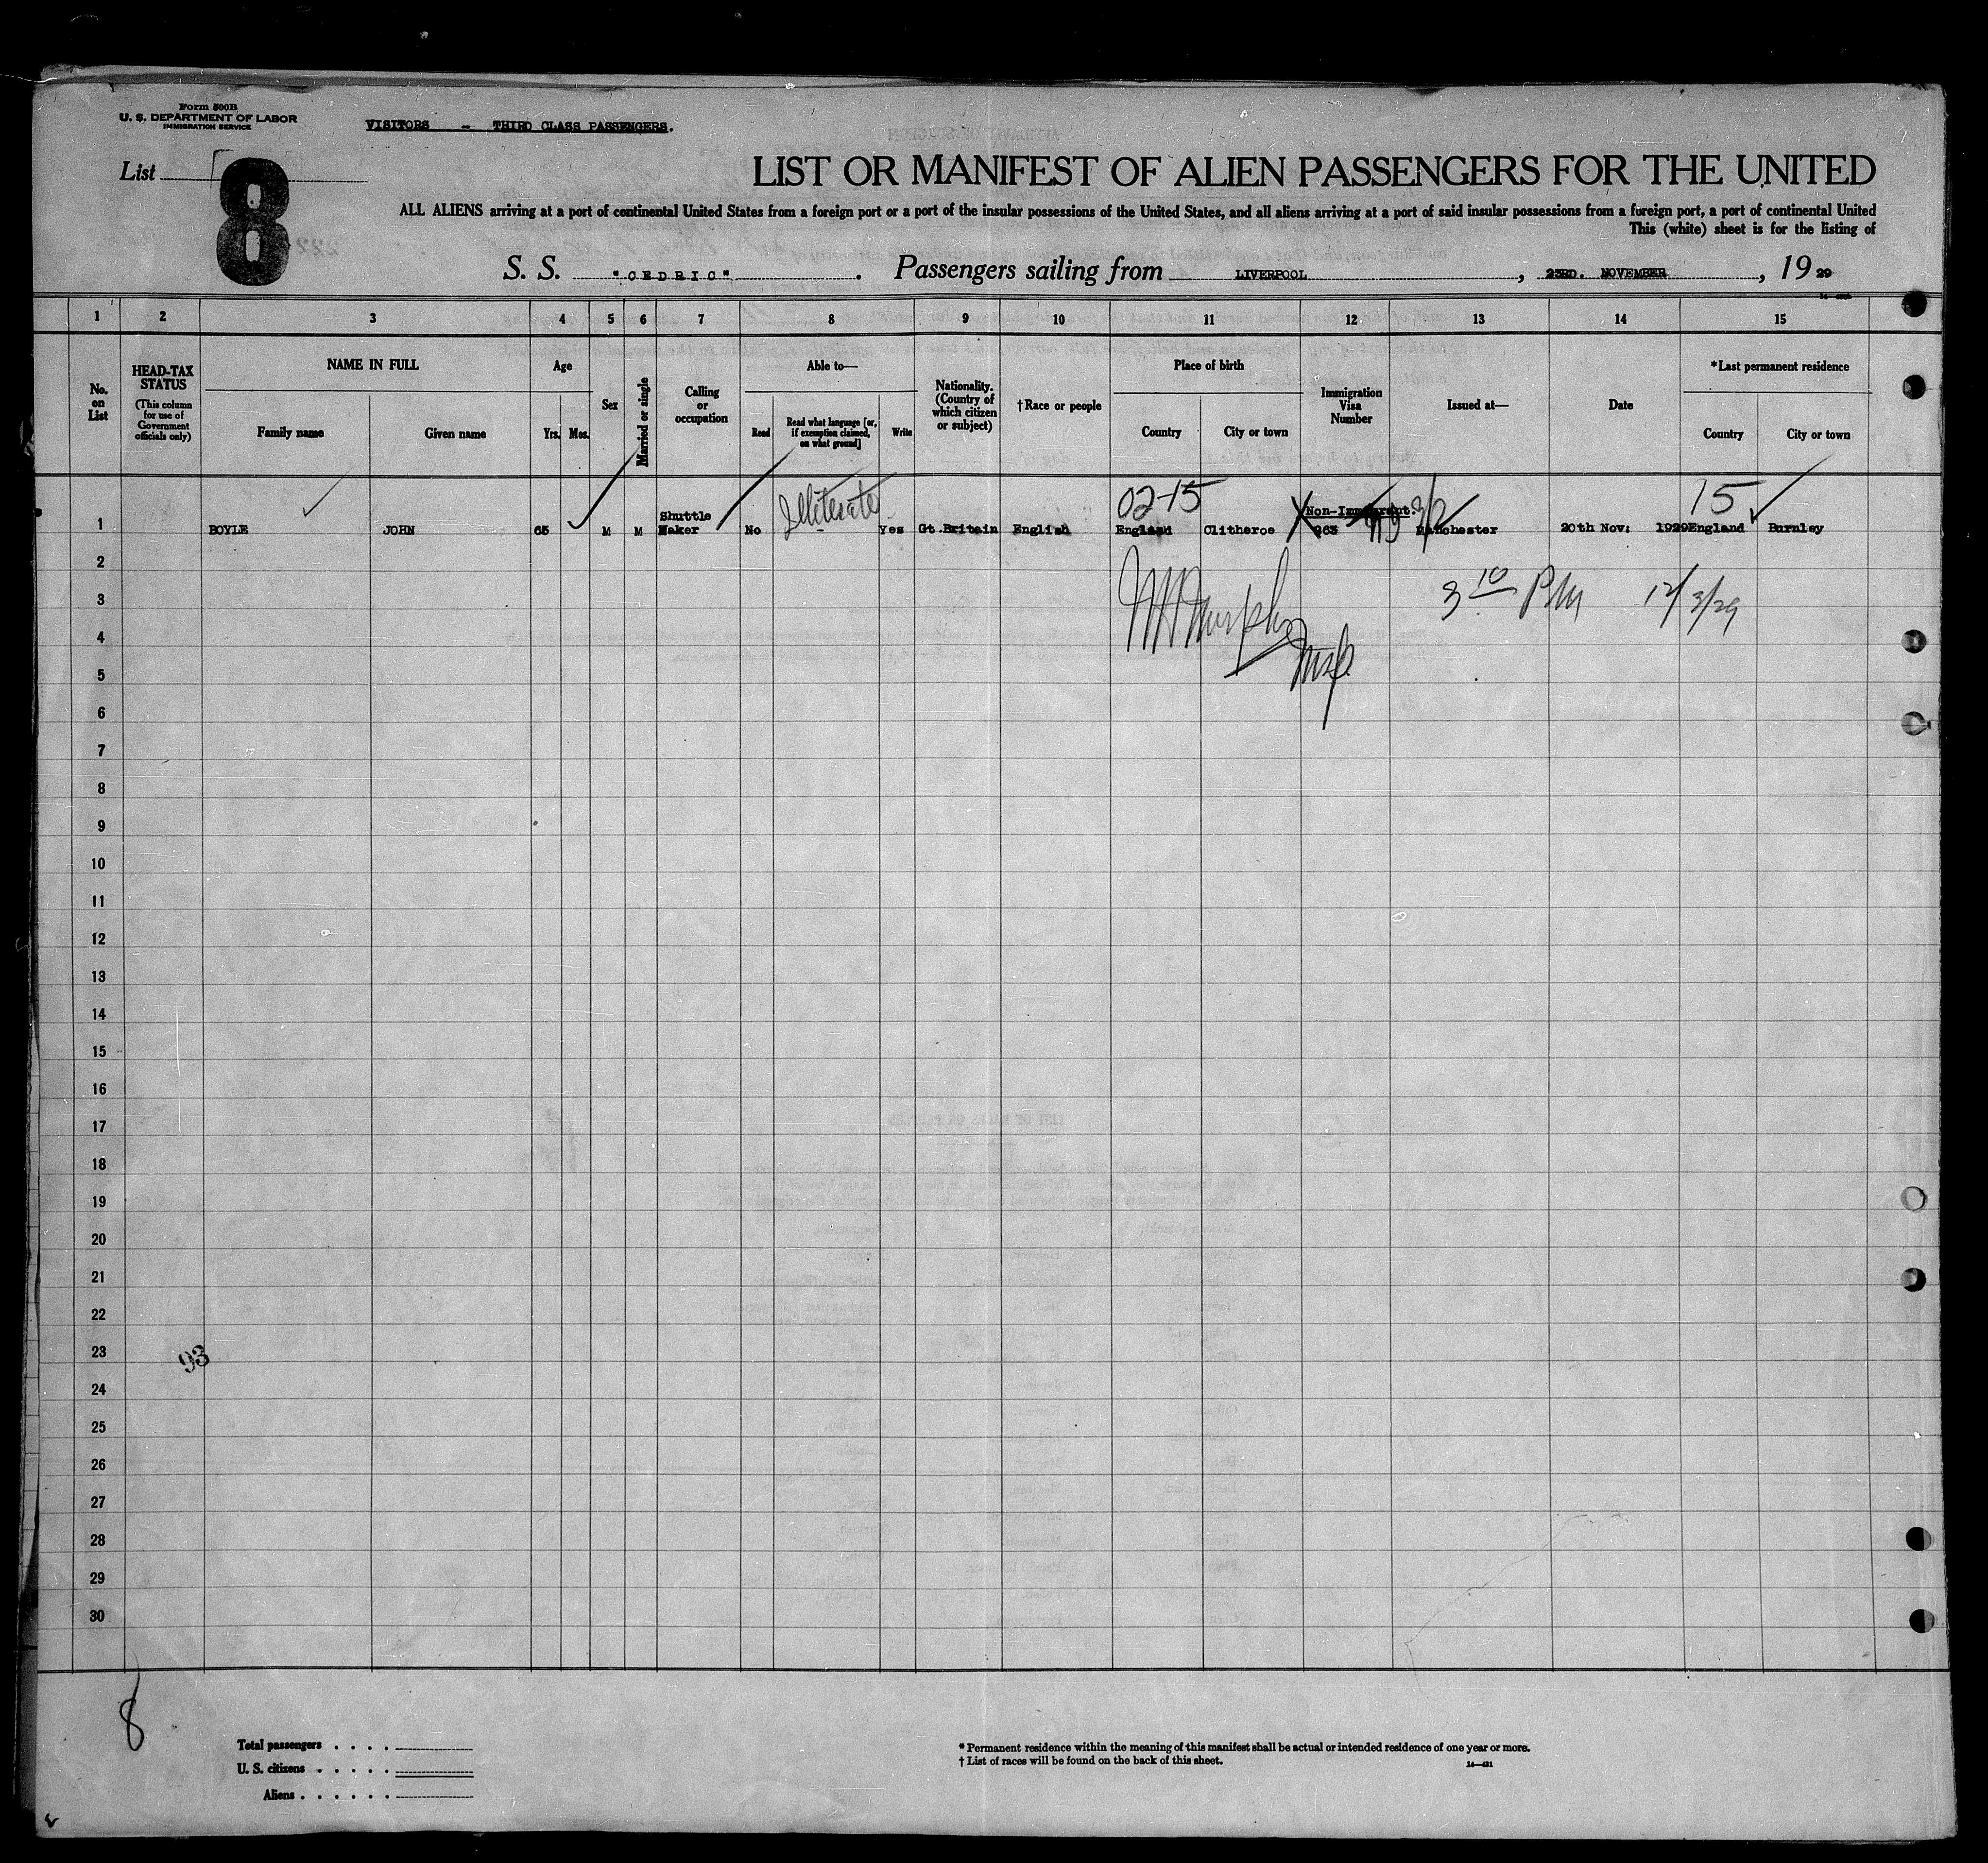 Form 500B
U. S. DEPARTMENT OF LABOR
IMMIGRATION SERVICE
VISITORS - THIRD CLASS PASSENGERS.
List 8
LIST OR MANIFEST OF ALIEN PASSENGERS FOR THE UNITED
ALL ALIENS arriving at a port of continental United States from a foreign port or a port of the insular possessions of the United States, and all aliens arriving at a port of said insular possessions from a foreign port, a port of continental United
This (white) sheet is for the listing of
S. S. "CEDRIC". Passengers sailing from LIVERPOOL, 23RD. NOVEMBER, 1929
1 2 3 4 5 6 7 8 9 10 11 12 13 14 15
No. on List
HEAD-TAX STATUS
(This column for use of Government officials only)
NAME IN FULL
Family name
Given name
Age
Yrs. Mos.
Sex
Married or single
Calling or occupation
Able to—
Read
Read what language [or, if exemption claimed, on what ground]
Write
Nationality. (Country of which citizen or subject)
†Race or people
Place of birth
Country
City or town
Immigration Visa Number
Issued at—
Date
*Last permanent residence
Country
City or town
Illiterate 02-15 15
Shuttle Non-Immigrant.
1 BOYLE JOHN 65 M M Maker No - Yes Gt.Britain English England Clitheroe 263 Manchester 20th Nov: 1929 England Burnley
2
3 3 10 PM 12/3/29
4 Murphy
5 Insp
6
7
8
9
10
11
12
13
14
15
16
17
18
19
20
21
22
23 93
24
25
26
27
28
29
30
8
Total passengers . . . .
U. S. citizens . . . . .
Aliens . . . . . .
* Permanent residence within the meaning of this manifest shall be actual or intended residence of one year or more.
† List of races will be found on the back of this sheet.